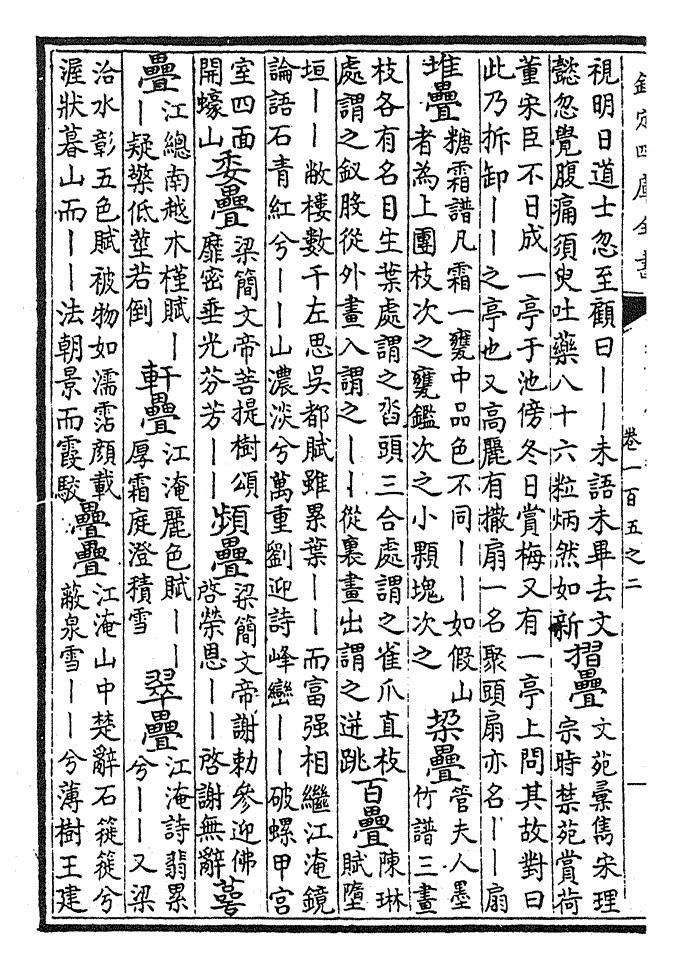 欽定四庫全書
卷一百五之二
視明日道士忽至顧曰丨丨未語未畢去文
懿忽覺腹痛須臾吐藥八十六粒炳然如新
摺疊
文苑彚雋宋理
宗時禁苑賞荷
董宋臣不日成一亭于池傍冬日賞梅又有一亭上問其故對曰
此乃折卸丨丨之亭也又高麗有撒扇一名聚頭扇亦名丨丨扇
堆疊
糖霜譜凡霜一甕中品色不同丨丨如假山
者為上團枝次之甕鑑次之小顆塊次之
垜疊
管夫人墨
竹譜三畫
枝各有名目生葉處謂之沓頭三合處謂之雀爪直枝
處謂之釵股從外畫入謂之丨丨從裏畫出謂之迸跳
百疊
陳琳
賦墮
垣丨丨敝樓數千左思吳都賦雖累葉丨丨而富强相繼江淹鏡
論語石青紅兮丨丨山濃淡兮萬重劉迎詩峰巒丨丨破螺甲宫
室四面
開蠔山
委疊
梁簡文帝菩提樹頌
靡密垂光芬芳丨丨
頻疊
梁簡文帝謝勅參迎佛
啓榮恩丨丨啓謝無辭
萼
疊
江總南越木槿賦丨
丨疑蘂低莖若倒
軒疊
江淹麗色賦丨丨
厚霜庭澄積雪
翠疊
江淹詩翡累
兮丨丨又梁
洽水彰五色賦被物如濡霑顔載
渥狀暮山而丨丨法朝景而霞駮
疊疊
江淹山中楚辭石簁簁兮
蔽泉雪丨丨兮薄樹王建